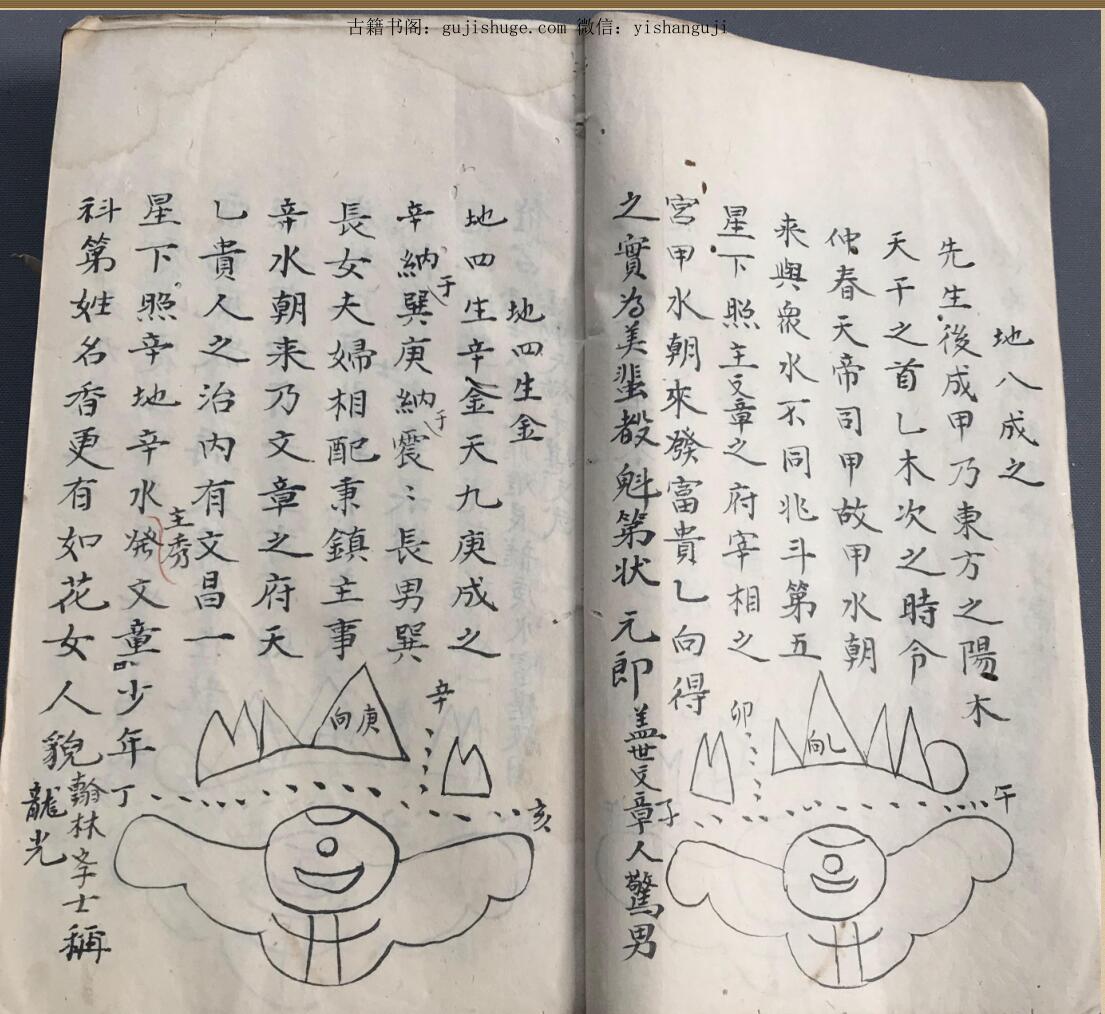 古籍书阁：gujishuge.com 微信：yishanguji
地八成之
先生後成甲乃東方之陽木
天干之首乚木次之時令
仲春天帝司甲故甲水朝
来與衆水不同兆斗第五
星下照主文章之府宰相之
宮甲水朝來發富貴乚向得
之實為美蜚都魁第状元郎盖世文章人驚男
卯
向乚
子
午
地四生金
地四生辛金天九庚成之
辛納于巽庚納于震〻長男巽
長女夫婦相配秉鎮主事
辛水朝来乃文章之府天
乚貴人之治內有文昌一
星下照辛地辛水發主秀文童少年
科第姓名香更有如花女人貌
翰林学士稱
龍光
辛
向庚
丁
亥